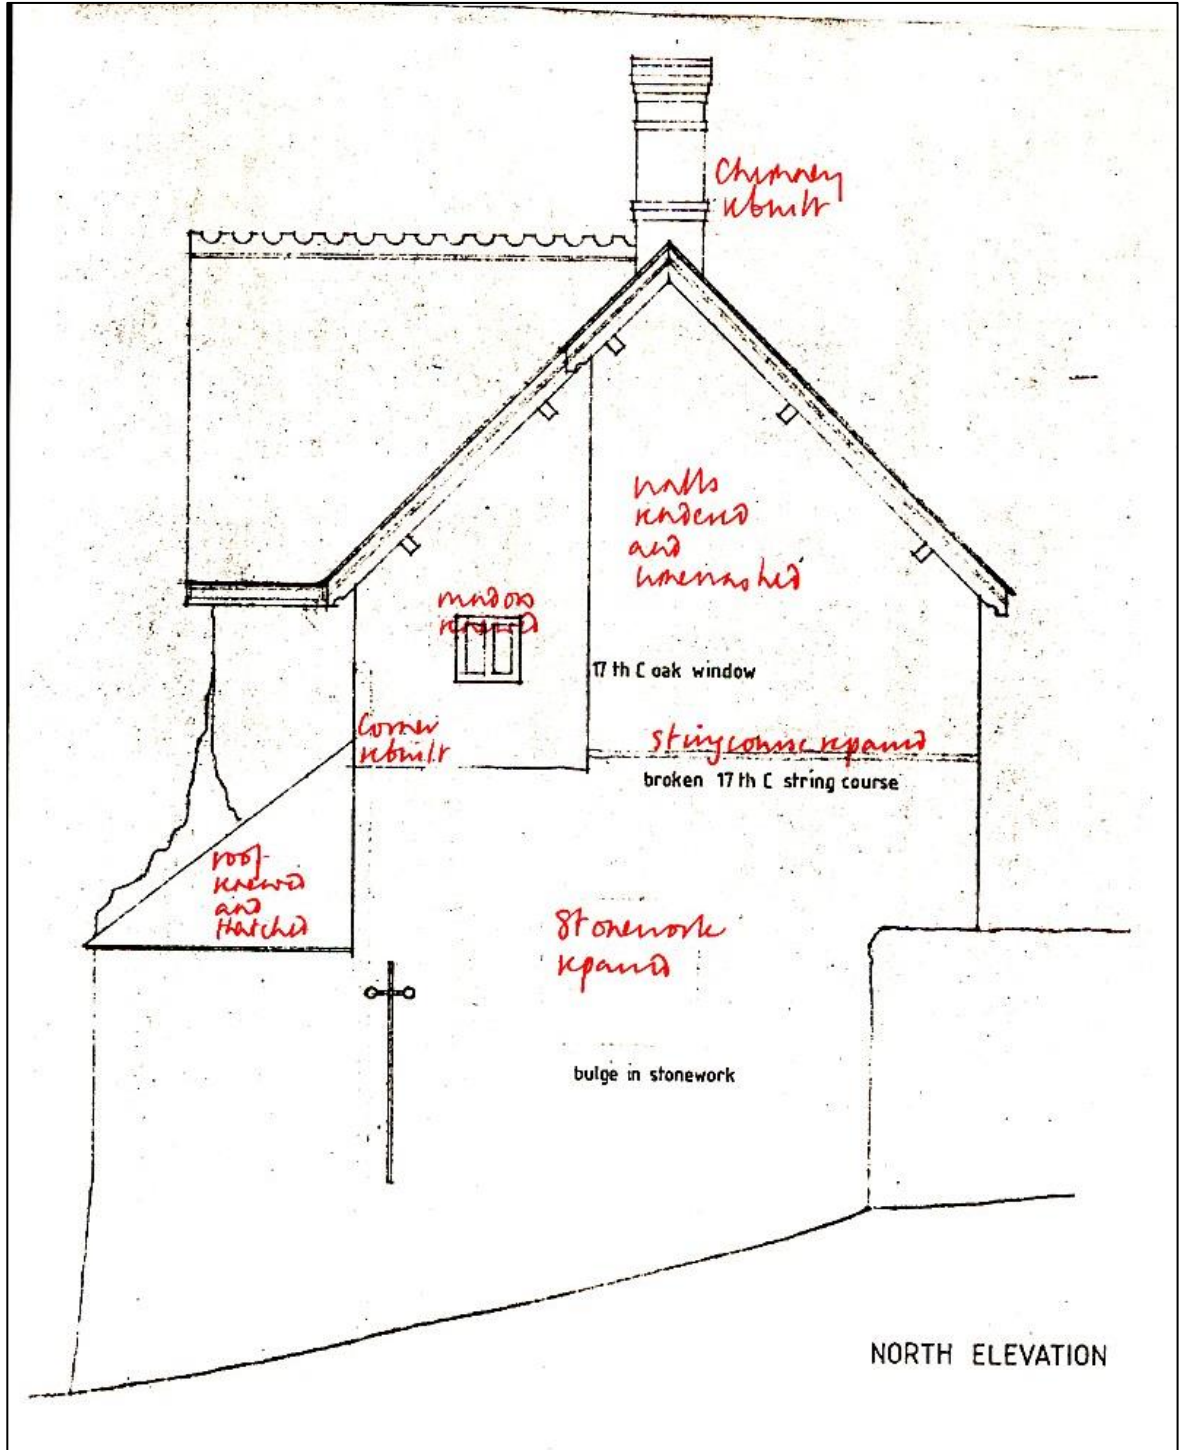 Chimney
rebuilt
walls
rendered
and
limewashed
window
renewed
17 th C oak window
Corner
rebuilt
String course repaired
broken 17 th C string course
roof
renewed
and
thatched
Stonework
repaired
bulge in stonework
NORTH ELEVATION